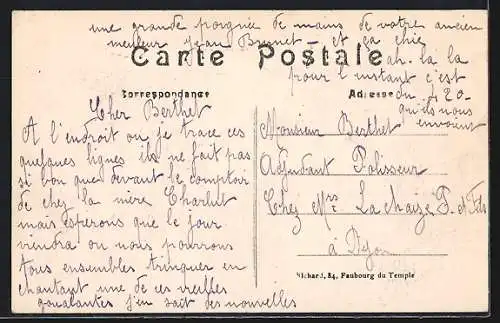 une grande poignée de mains de votre ancien
meilleur Jean Brunet et ça chie
Carte Postale
ah. la la
pour l'instant c'est
du 420
qu'ils nous
envoient
Correspondance
Adresse
Cher Berthet
A l'endroit ou je trace ces
quelques lignes ils ne fait pas
si bon que devant le comptoir
de chez la mère Charlut
mais esperons que le jour
viendra ou nous pourrons
tous ensembles trinquer en
chantant une de ces vieilles
goualantes j'en sait des nouvelles
Monsieur Berthet
Adjudant Polisseur
Chez Mrs Lachaize P. et Fils
à
Richard, 84, Faubourg du Temple